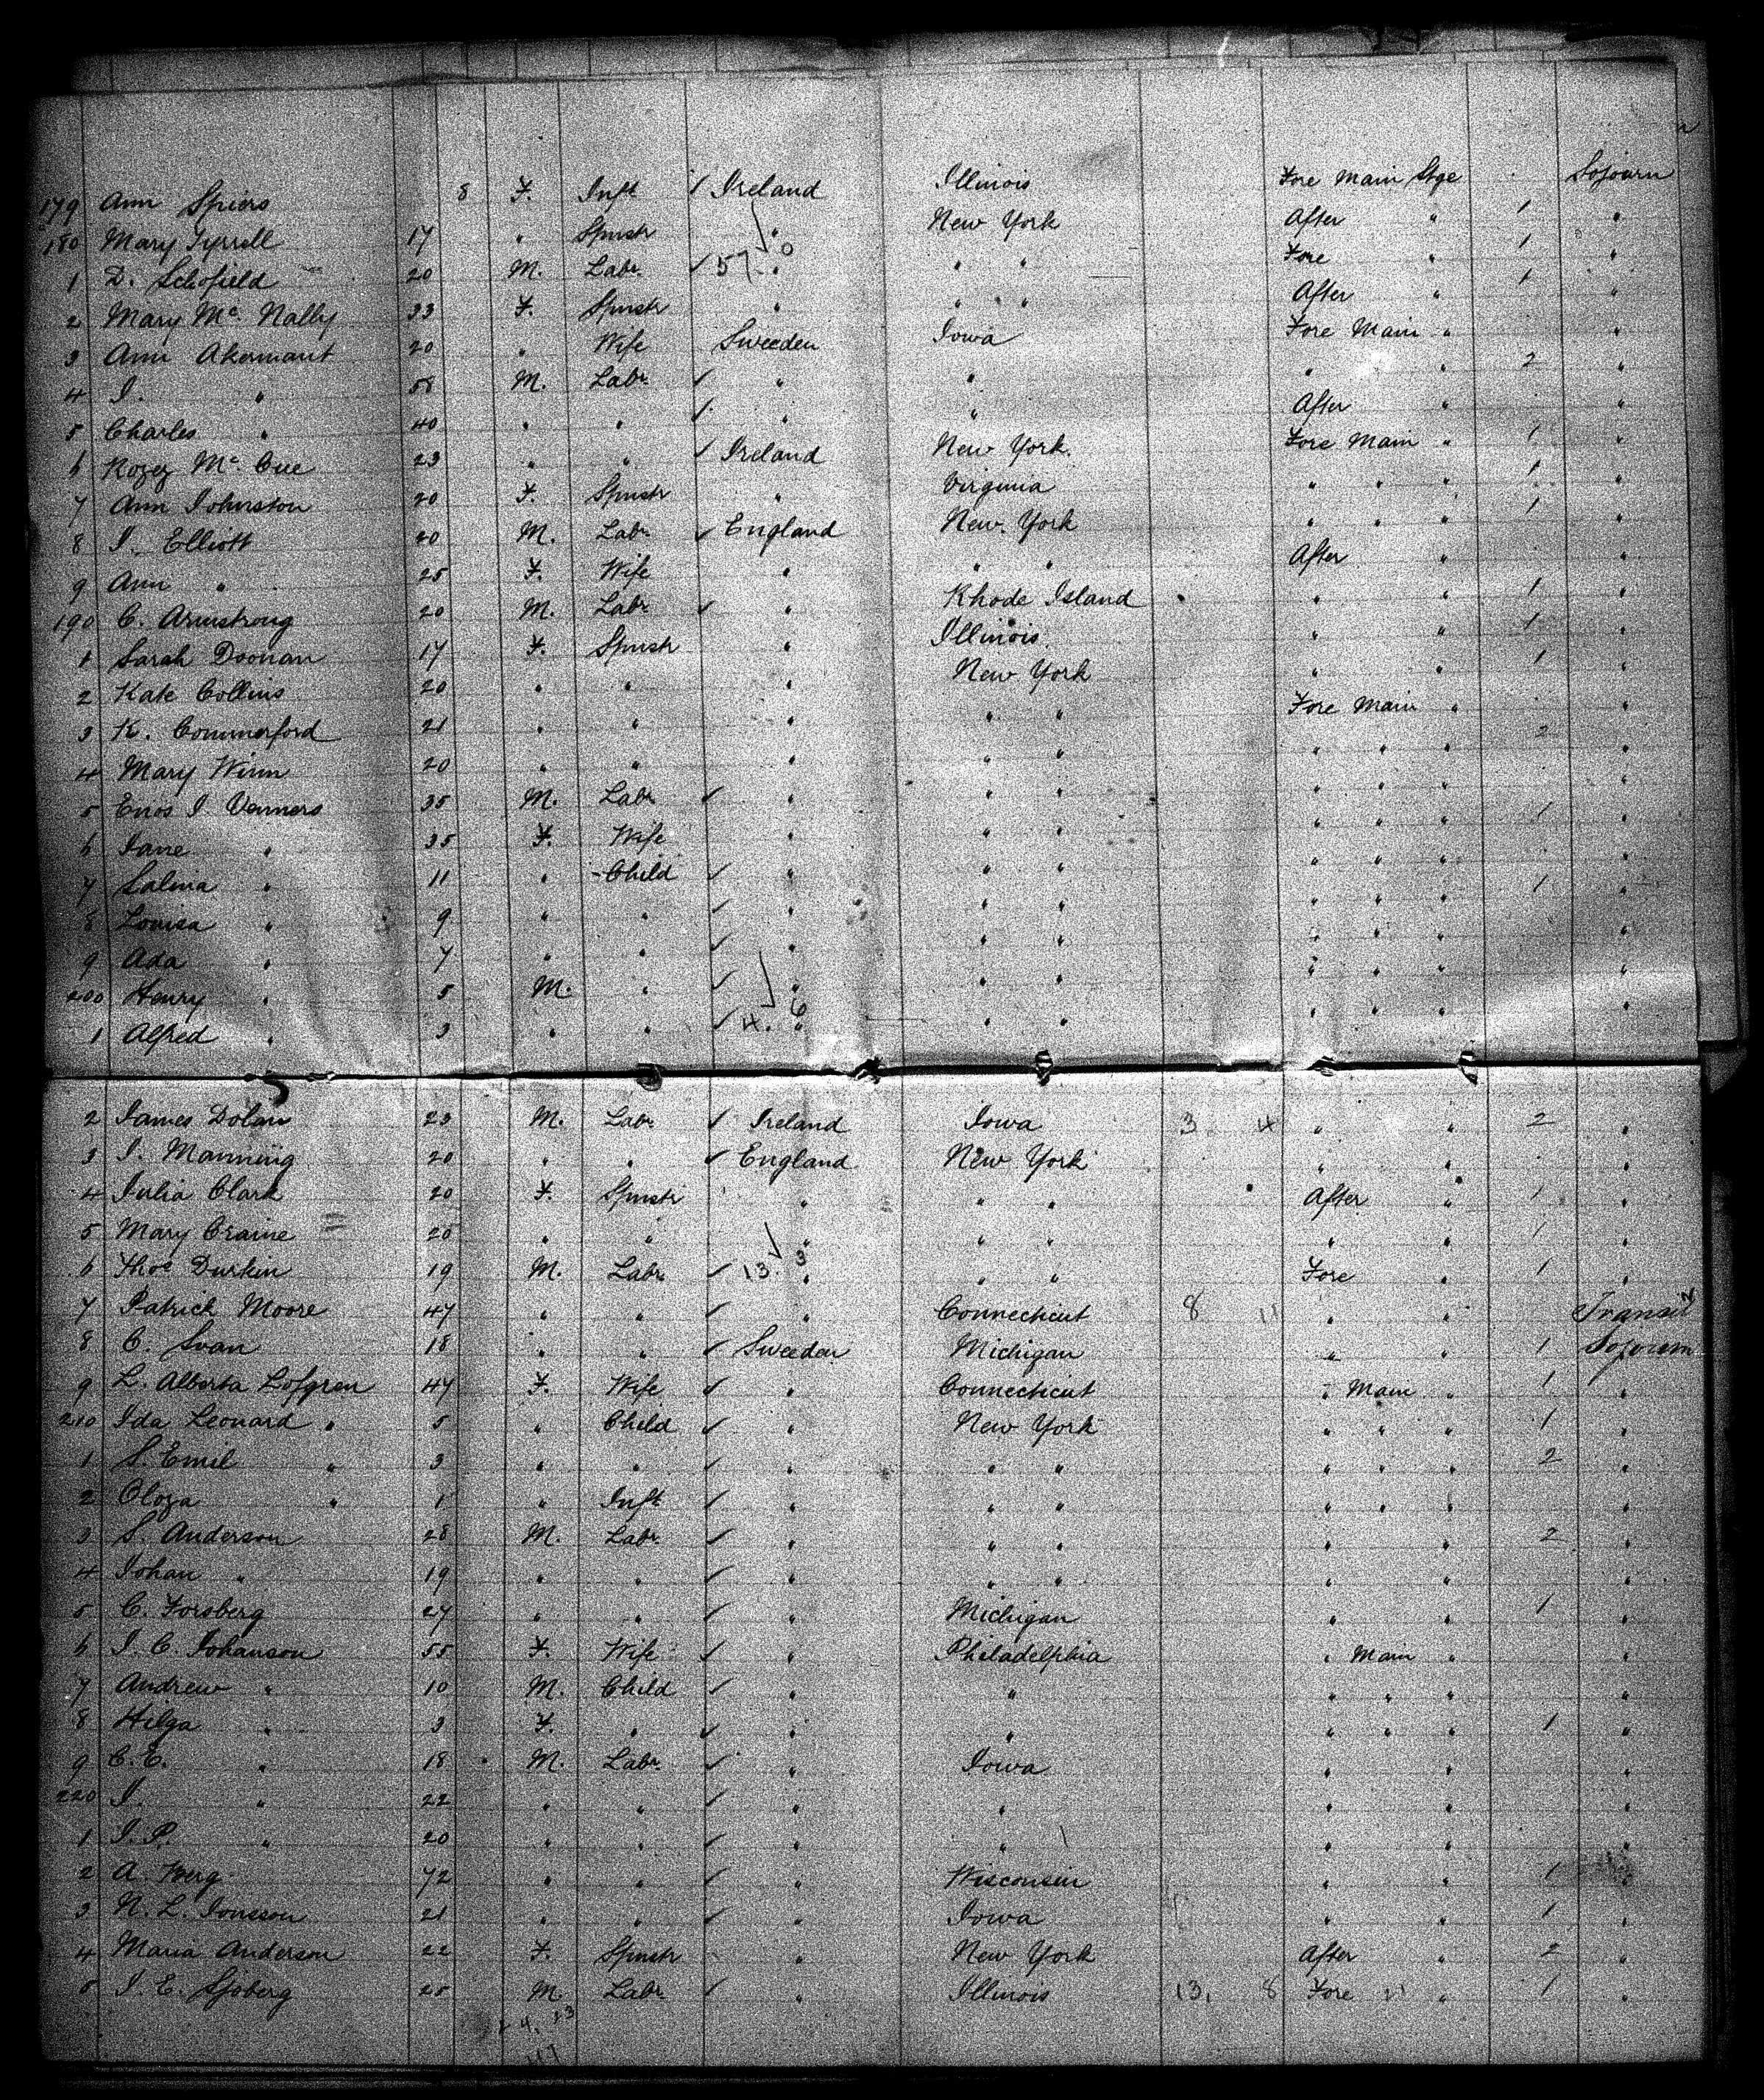 179 Ann Spiers 8 F. Inft ✓ Ireland Illinois Fore Main Stge Sojourn
180 Mary Tyrrell 17 " Spnstr " New York After " 1 "
1 D. Schofield 20 M. Labr ✓ 57 0 " " " Fore " 1 "
2 Mary Mc Nally 33 F. Spnstr " " " After " 1 "
3 Ann Akermant 20 " Wife Sweeden Iowa Fore Main " "
4 I. " 58 M. Labr ✓ " " " " 2 "
5 Charles " 40 " " ✓ " " After " "
6 Rozez Mc Cue 23 " " ✓ Ireland New York Fore Main " 1 "
7 Ann Johnston 20 F. Spnstr " Virginia " " " 1 "
8 I. Elliott 20 M. Labr ✓ England New York " " " 1 "
9 Ann " 25 F. Wife " " " After " "
190 C. Armstrong 20 M. Labr ✓ " Rhode Island " " 1 "
1 Sarah Doonan 17 F. Spnstr " Illinois " " 1 "
2 Kate Collins 20 " " " New York " " 1 "
3 K. Commerford 21 " " " " " Fore Main " "
4 Mary Winn 20 " " " " " " " " 2 "
5 Enos I Venners 35 M. Labr ✓ " " " " " " "
6 Jane " 35 F. Wife " " " " " " 1 "
7 Salina " 11 " Child ✓ " " " " " " "
8 Louisa " 9 " " ✓ " " " " " " 1 "
9 Ada " 7 " " ✓ " " " " " " "
200 Henry " 5 M. " ✓ " " " " " " "
1 Alfred " 3 " " ✓ 4. 6 " " " " " " "
2 James Dolan 23 M. Labr ✓ Ireland Iowa 3 4 " " 2 "
3 I. Manning 20 " " ✓ England New York " " "
4 Julia Clark 20 F. Spnstr " " " After " 1 "
5 Mary Craine 20 " " " " " " " 1 "
6 Thos Durkin 19 M. Labr ✓ 13. 3 " " " Fore " 1 "
7 Patrick Moore 47 " " ✓ " Connecticut 8 11 " " Transit
8 C. Svan 18 " " ✓ Sweeden Michigan " " 1 Sojourn
9 L. Alberta Lofgren 47 F. Wife ✓ " Connecticut " Main " 1 "
210 Ida Leonard " 5 " Child ✓ " New York " " " 1 "
1 S. Emil " 3 " " ✓ " " " " " " 2 "
2 Oloza " 1 " Inft ✓ " " " " " " "
3 S. Anderson 28 M. Labr ✓ " " " " " 2 "
4 Johan " 19 " " ✓ " " " " " "
5 C. Forsberg 27 " " ✓ " Michigan " " 1 "
6 I. C. Johanson 55 F. Wife ✓ " Philadelphia " Main " "
7 Andrew " 10 M. Child ✓ " " " " " "
8 Hilga " 3 F. " ✓ " " " " " 1 "
9 C. E. " 18 M. Labr ✓ " Iowa " " "
220 I. " 22 " " ✓ " " " " "
1 I. P. " 20 " " ✓ " " " " "
2 A. Berg 72 " " ✓ " Wisconsin " " 1
3 N. L. Jonsson 21 " " ✓ " Iowa " " 1 "
4 Maria Anderson 22 F. Spnstr " New York After " 2 "
5 I. E. Sjoberg 25 M Labr ✓ " Illinois 13, 8 Fore " 1 "